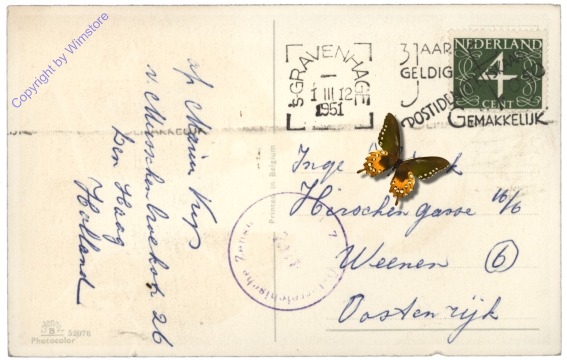 Copyright by Wimstore
's-GRAVENHAGE
1 III 12
1951
3 JAAR
GELDIG
POSTIDE
GEMAKKELIJK
NEDERLAND
4
CENT
afz Maria
v Musschenbroekstr 26
Den Haag
Holland
Inge
Hirschengasse 16/6
Weenen 6
Oostenrijk
Printed in Belgium
Österreichische Zensur
52076
Photocolor